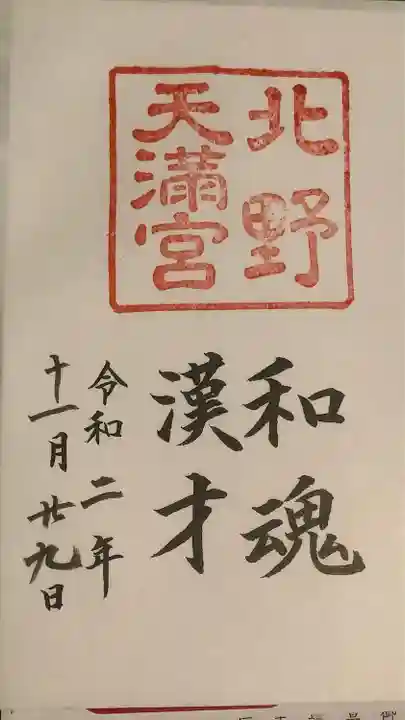 北野
天満宮
和魂
漢才
令和二年
十一月廿九日